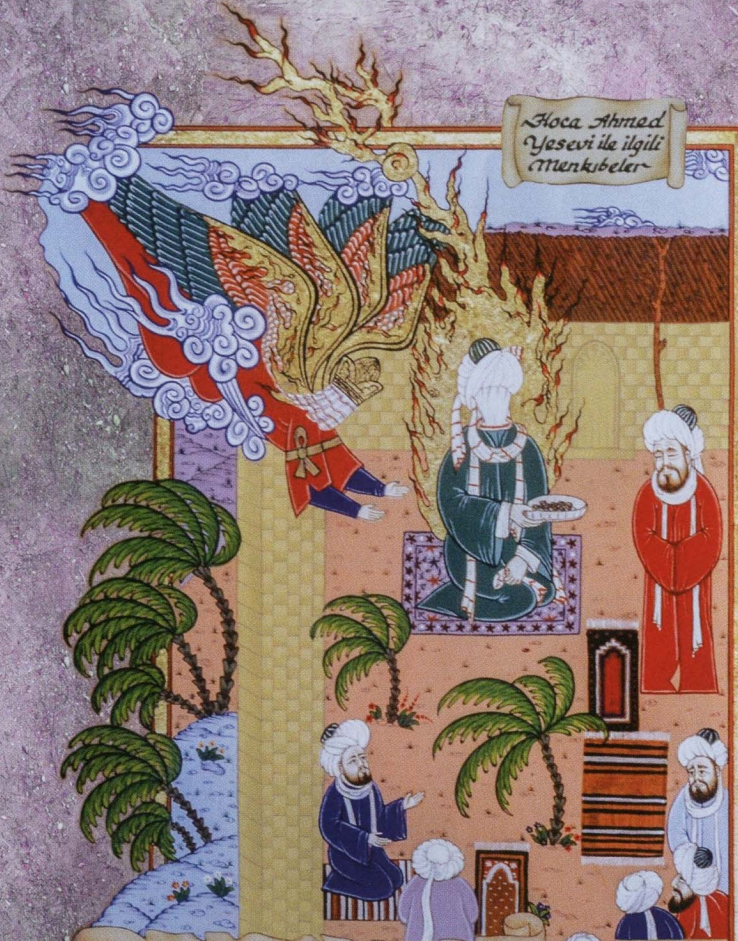 Hoca Ahmed
Yesevi ile ilgili
Menkıbeler